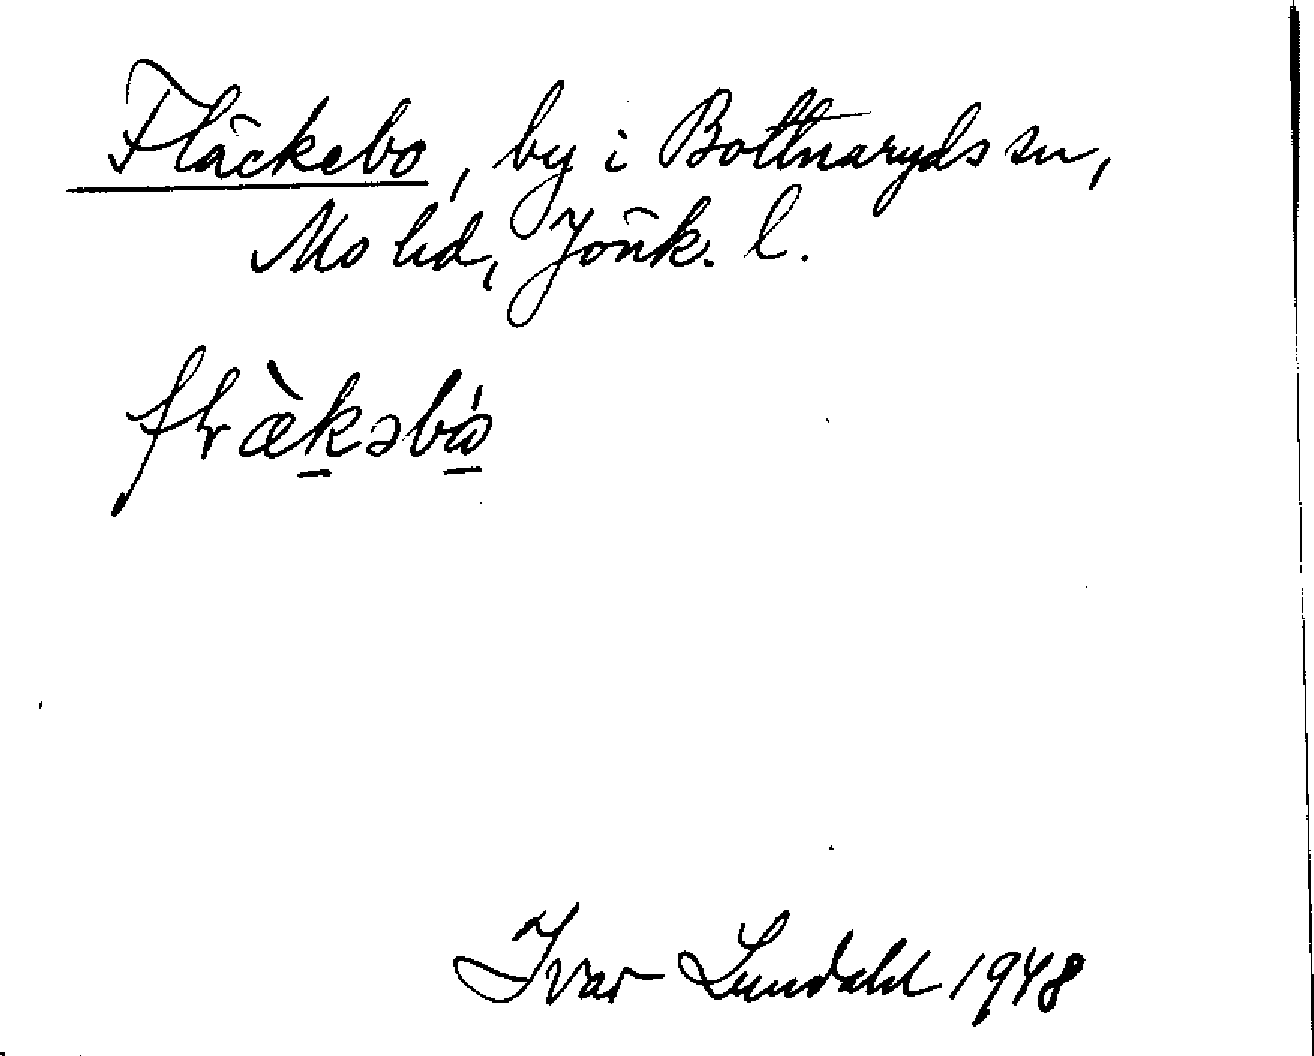 Fläckebo, by i Bottnaryds sn,
Mo hd, Jönk. l.
Ivar Lundahl 1948